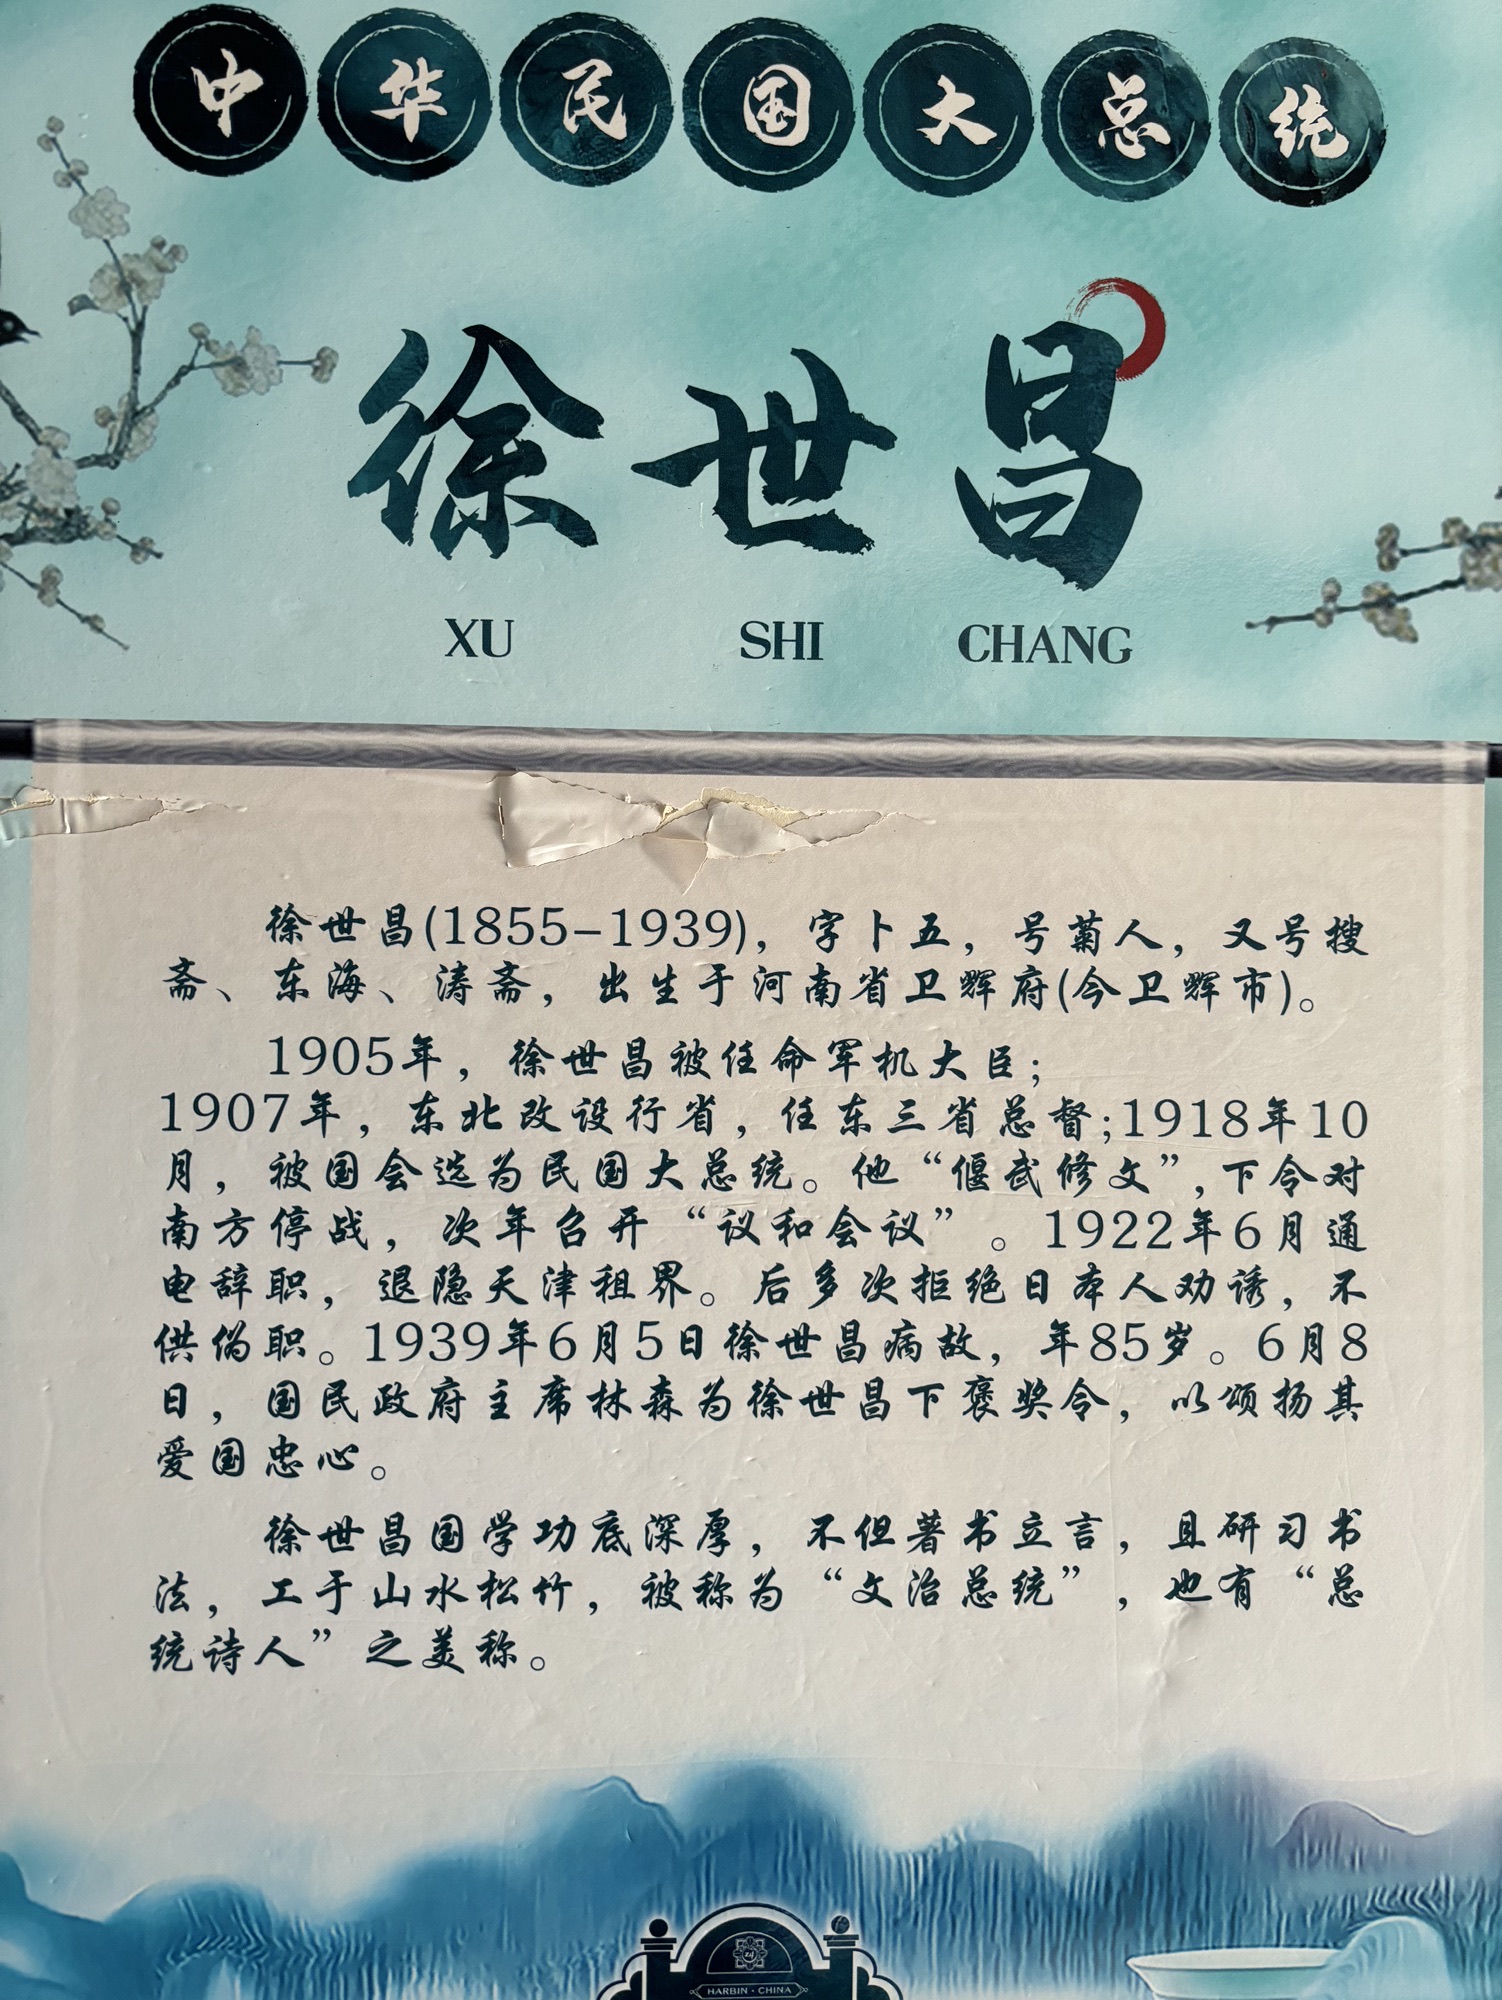 中华民国大总统
徐世昌
XU SHI CHANG
徐世昌(1855-1939)，字卜五，号菊人，又号搜
斋、东海、涛斋，出生于河南省卫辉府(今卫辉市)。
1905年，徐世昌被任命军机大臣；
1907年，东北改设行省，任东三省总督;1918年10
月，被国会选为民国大总统。他“偃武修文”,下令对
南方停战，次年召开“议和会议”。1922年6月通
电辞职，退隐天津租界。后多次拒绝日本人劝诱，不
供伪职。1939年6月5日徐世昌病故，年85岁。6月8
日，国民政府主席林森为徐世昌下褒奖令，以颂扬其
爱国忠心。
徐世昌国学功底深厚，不但著书立言，且研习书
法，工于山水松竹，被称为“文治总统”，也有“总
统诗人”之美称。
HARBIN·CHINA